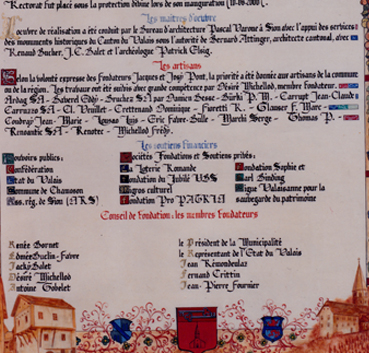 Rectorat fut placé sous la protection divine lors de son inauguration (18-06-2000 ).
Les maîtres d'oeuvre
oeuvre de réalisation a été conduit par le Bureau d'architecture Pascal Varone à Sion avec l'appui des services
des monuments historiques du Canton du Valais sous l'autorité de Bernard Attinger, architecte cantonal, avec
Renaud Bucher, J.C. Balet et l'archéologue Patrick Elsig.
Les artisans
Selon la volonté expresse des Fondateurs Jacques et José Pont, la priorité a été donnée aux artisans de la commune
ou de la région. Les travaux ont été suivis avec grande compétence par Désiré Michellod, membre fondateur.
SA - Bruchez SA par Damien Besse - P.M. - Carrupt Jean-Claude
Carruzzo SA - El. Veuillet - Crettenand Dominique - Fioretti K. - Glauser F. Marc -
Coudray Jean-Marie - Luis - Eric Favre-Bulle - Marchi Serge - Thomas P. -
SA - Renotec - Michellod Frédy.
Les soutiens financiers
Pouvoirs publics: Sociétés Fondations et Soutiens privés:
Confédération La Loterie Romande Fondation Sophie et
Etat du Valais Fondation du Jubilé UBS Karl Binding
Commune de Chamoson Migros culturel Ligue Valaisanne pour la
Ass. rég. de Sion (ARS) Fondation Pro PATRIA sauvegarde du patrimoine
Conseil de Fondation: les membres Fondateurs
Renée Bornet le Président de la Municipalité
Edmée Buclin-Favre le Représentant de l'Etat du Valais
Jacky Balet Jean Rémondeulaz
Désiré Michellod Fernand Crittin
Antoine Gobelet Jean-Pierre Fournier